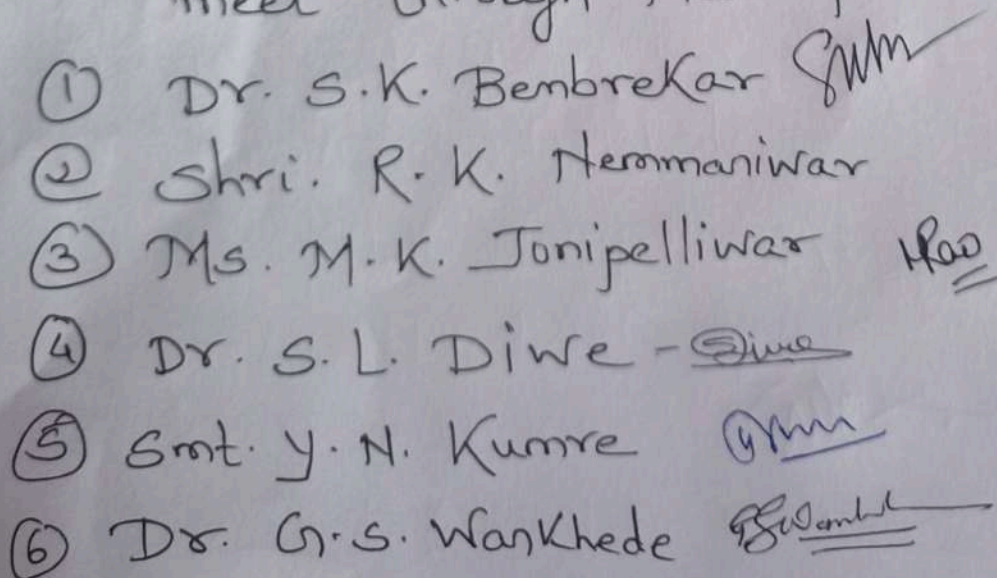 meet through
① Dr. S.K. Bembrekar
② Shri. R.K. Nemmaniwar
③ Ms. M.K. Jonipelliwar
④ Dr. S.L. Diwe - Diwe
⑤ Smt. Y.N. Kumre
⑥ Dr. G.S. Wankhede